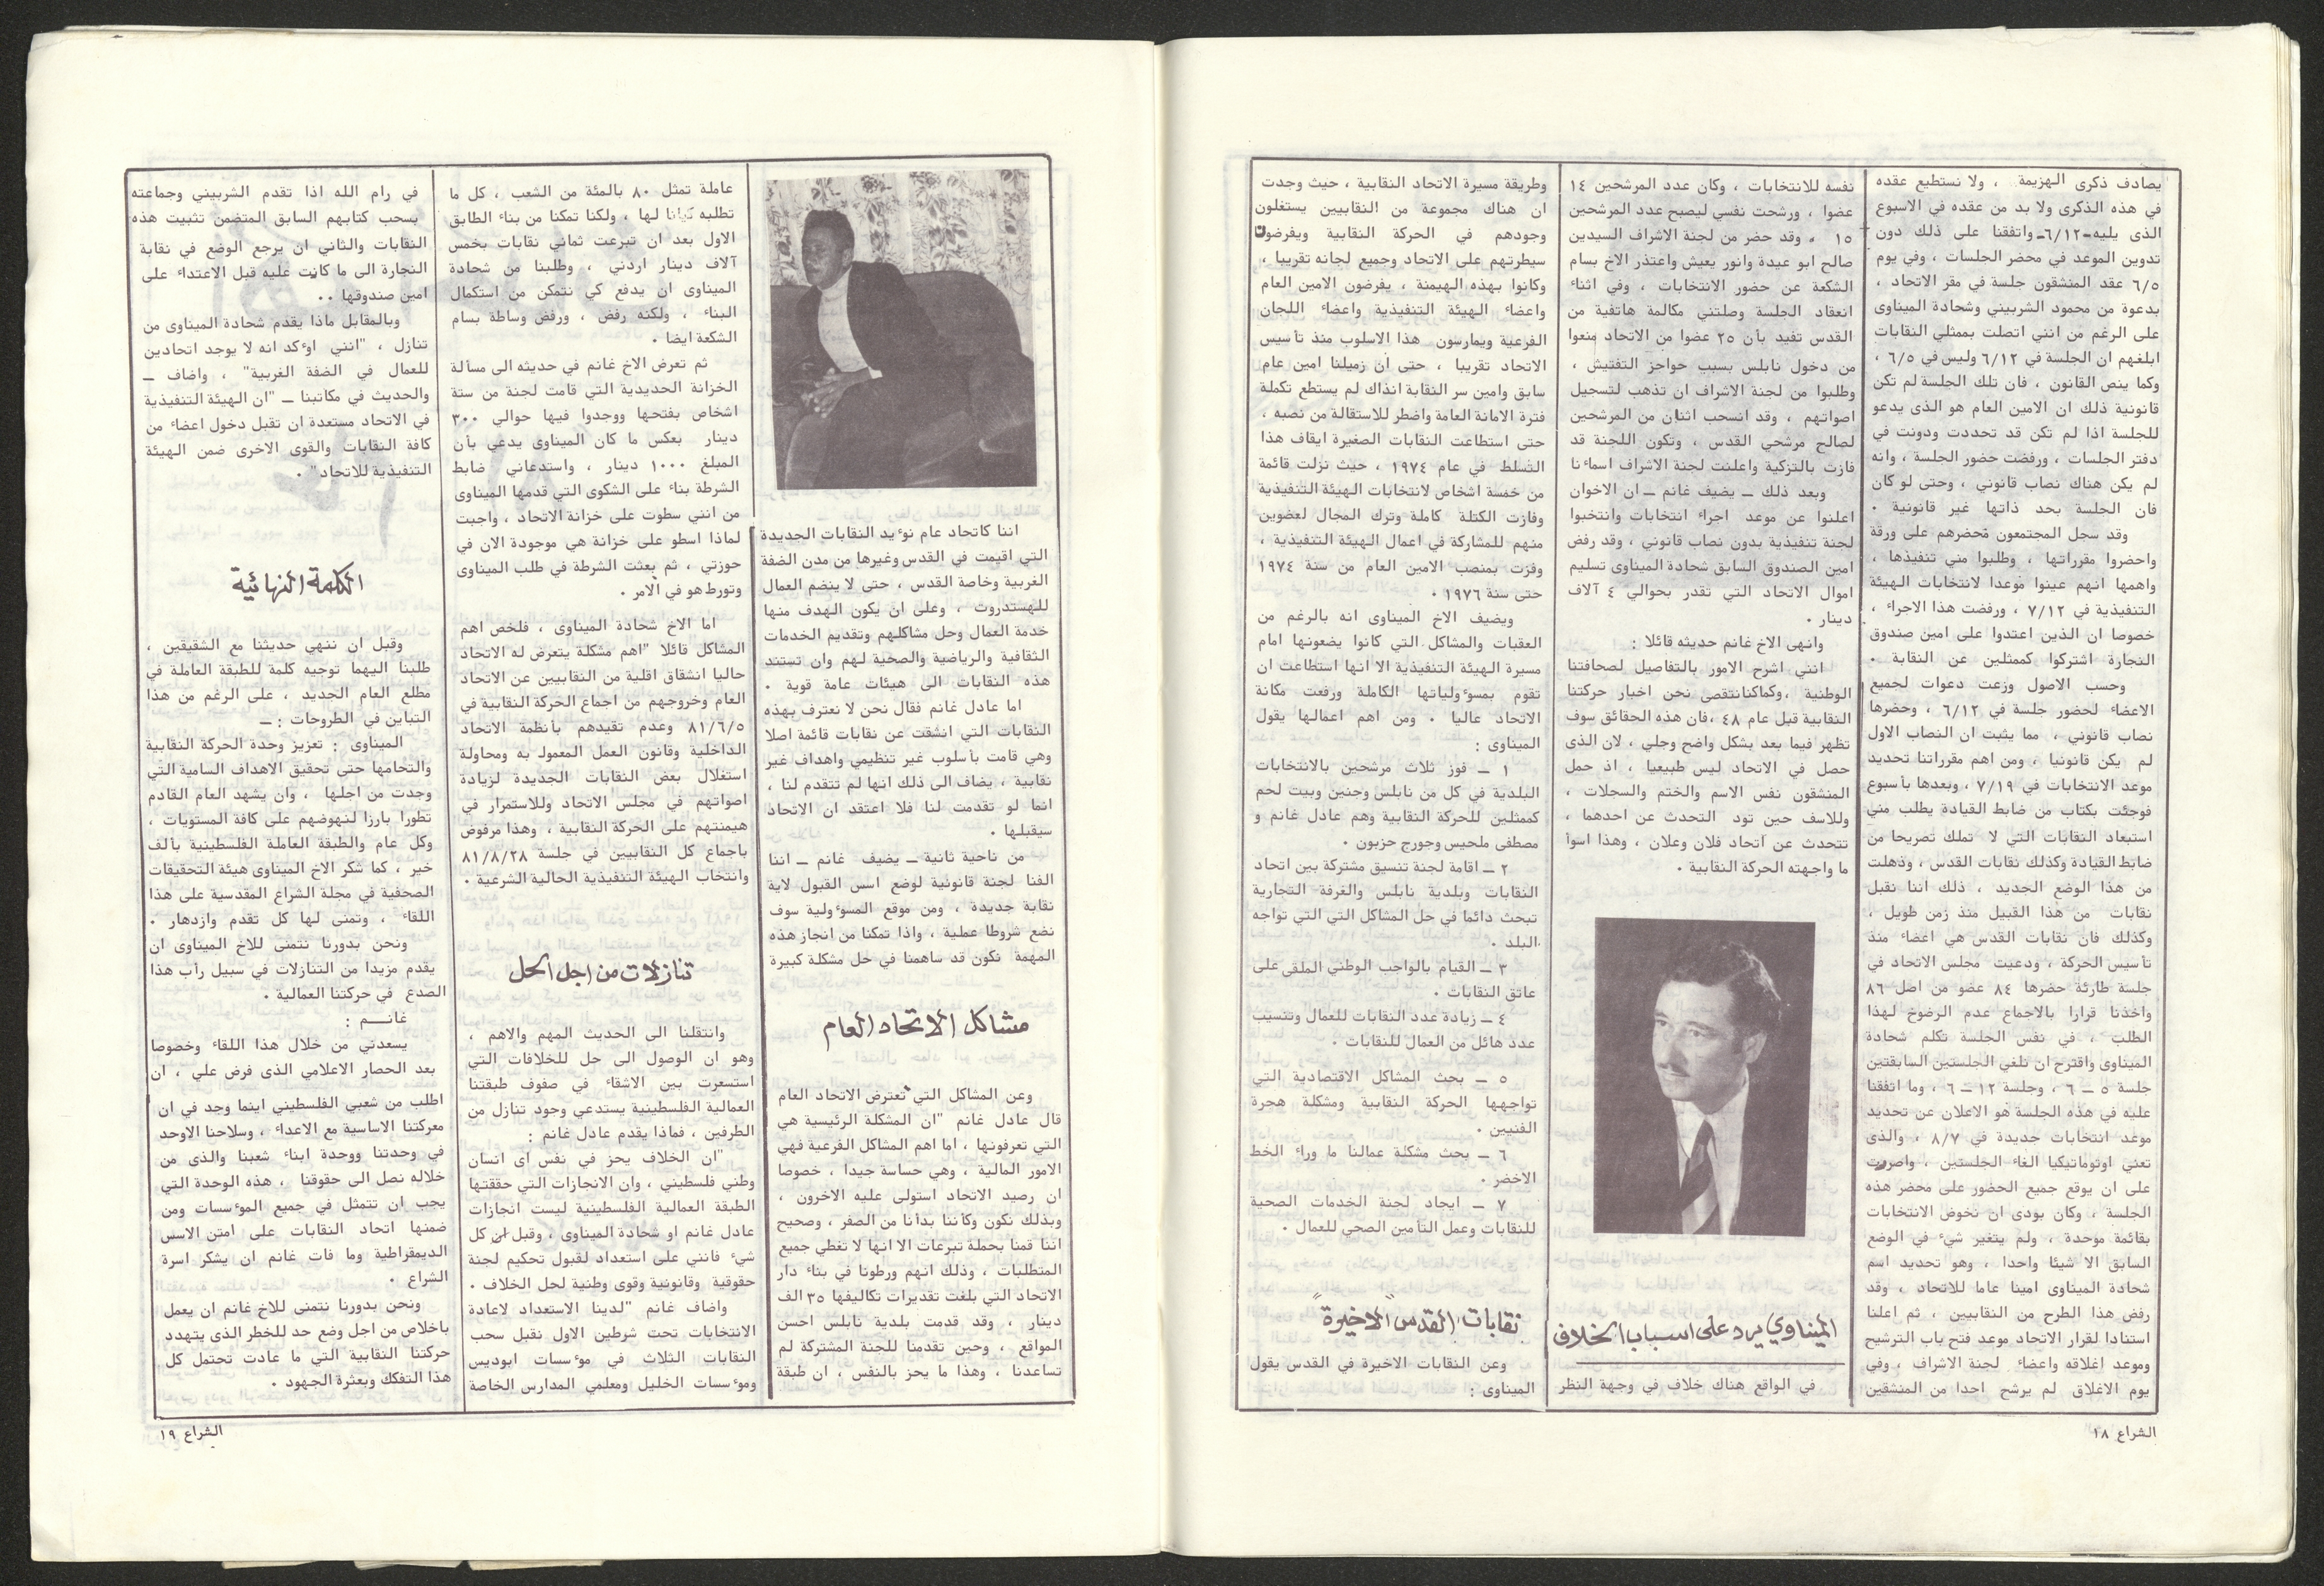 يصادف ذكرى الهزيمة ، ولا نستطيع عقده
في هذه الذكرى ولا بد من عقده في الاسبوع
الذى يليه-٦/١٢- واتفقنا على ذلك دون
تدوين الموعد في محضر الجلسات ، وفي يوم
٦/٥ عقد المنشقون جلسة في مقر الاتحاد ،
بدعوة من محمود الشربيني وشحادة الميناوى
على الرغم من انني اتصلت بممثلي النقابات
ابلغهم ان الجلسة في ٦/١٢ وليس في ٦/٥ ،
وكما ينص القانون ، فان تلك الجلسة لم تكن
قانونية ذلك ان الامين العام هو الذى يدعو
للجلسة اذا لم تكن قد تحددت ودونت في
دفتر الجلسات ، ورفضت حضور الجلسة ، وانه
لم يكن هناك نصاب قانوني ، وحتى لو كان
فان الجلسة بحد ذاتها غير قانونية .
وقد سجل المجتمعون محضرهم على ورقة
واحضروا مقرراتها ، وطلبوا مني تنفيذها ،
واهمها انهم عينوا موعدا لانتخابات الهيئة
التنفيذية في ٧/١٢ ، ورفضت هذا الاجراء ،
خصوصا ان الذين اعتدوا على امين صندوق
النجارة اشتركوا كممثلين عن النقابة .
وحسب الاصول وزعت دعوات لجميع
الاعضاء لحضور جلسة في ٦/١٢ ، وحضرها
نصاب قانوني ، مما يثبت ان النصاب الاول
لم يكن قانونيا ، ومن اهم مقرراتنا تحديد
موعد الانتخابات في ٧/١٩ ، وبعدها بأسبوع
فوجئت بكتاب من ضابط القيادة يطلب مني
استبعاد النقابات التي لا تملك تصريحا من
ضابط القيادة وكذلك نقابات القدس ، وذهلت
من هذا الوضع الجديد ، ذلك اننا نقبل
نقابات من هذا القبيل منذ زمن طويل ،
وكذلك فان نقابات القدس هي اعضاء منذ
تأسيس الحركة ، ودعيت مجلس الاتحاد في
جلسة طارئة حضرها ٨٤ عضو من اصل ٨٦
واخذنا قرارا بالاجماع عدم الرضوخ لهذا
الطلب ، في نفس الجلسة تكلم شحادة
الميناوى واقترح ان تلغي الجلستين السابقتين
جلسة ٥ ــ ٦ ، وجلسة ١٢ ــ ٦ ، وما اتفقنا
عليه في هذه الجلسة هو الاعلان عن تحديد
موعد انتخابات جديدة في ٨/٧ ، والذى
تعني اوتوماتيكيا الغاء الجلستين ، واصريت
على ان يوقع جميع الحضور على محضر هذه
الجلسة ، وكان بودى ان نخوض الانتخابات
بقائمة موحدة ، ولم يتغير شيء في الوضع
السابق الا شيئا واحدا ، وهو تحديد اسم
شحادة الميناوى امينا عاما للاتحاد ، وقد
رفض هذا الطرح من النقابيين ، ثم اعلنا
استنادا لقرار الاتحاد موعد فتح باب الترشيح
وموعد اغلاقه واعضاء لجنة الاشراف ، وفي
يوم الاغلاق لم يرشح احدا من المنشقين
نفسه للانتخابات ، وكان عدد المرشحين ١٤
عضوا ، ورشحت نفسي ليصبح عدد المرشحين
١٥ ، وقد حضر من لجنة الاشراف السيدين
صالح ابو عيدة وانور يعيش واعتذر الاخ بسام
الشكعة عن حضور الانتخابات ، وفي اثناء
انعقاد الجلسة وصلتني مكالمة هاتفية من
القدس تفيد بأن ٢٥ عضوا من الاتحاد منعوا
من دخول نابلس بسبب حواجز التفتيش ،
وطلبوا من لجنة الاشراف ان تذهب لتسجيل
اصواتهم ، وقد انسحب اثنان من المرشحين
لصالح مرشحي القدس ، وتكون اللجنة قد
فازت بالتزكية واعلنت لجنة الاشراف اسماءنا
وبعد ذلك ــ يضيف غانم ــ ان الاخوان
اعلنوا عن موعد اجراء انتخابات وانتخبوا
لجنة تنفيذية بدون نصاب قانوني ، وقد رفض
امين الصندوق السابق شحادة الميناوى تسليم
اموال الاتحاد التي تقدر بحوالي ٤ آلاف
دينار .
وانهى الاخ غانم حديثه قائلا :
انني اشرح الامور بالتفاصيل لصحافتنا
الوطنية ،وكماكنانتقصى نحن اخبار حركتنا
النقابية قبل عام ٤٨ ،فان هذه الحقائق سوف
تظهر فيما بعد بشكل واضح وجلي ، لان الذى
حصل في الاتحاد ليس طبيعيا ، اذ حمل
المنشقون نفس الاسم والختم والسجلات ،
وللاسف حين تود التحدث عن احدهما ،
تتحدث عن اتحاد فلان وعلان ، وهذا اسوأ
ما واجهته الحركة النقابية .
الميناوي يرد على اسباب الخلاف
في الواقع هناك خلاف في وجهة النظر
وطريقة مسيرة الاتحاد النقابية ، حيث وجدت
ان هناك مجموعة من النقابيين يستغلون
وجودهم في الحركة النقابية ويفرضون
سيطرتهم على الاتحاد وجميع لجانه تقريبا ،
وكانوا بهذه الهيمنة ، يفرضون الامين العام
واعضاء الهيئة التنفيذية واعضاء اللجان
الفرعية ويمارسون هذا الاسلوب منذ تأسيس
الاتحاد تقريبا ، حتى ان زميلنا امين عام
سابق وامين سر النقابة انذاك لم يستطع تكملة
فترة الامانة العامة واضطر للاستقالة من نصبه ،
حتى استطاعت النقابات الصغيرة ايقاف هذا
التسلط في عام ١٩٧٤ ، حيث نزلت قائمة
من خمسة اشخاص لانتخابات الهيئة التنفيذية
وفازت الكتلة كاملة وترك المجال لعضوين
منهم للمشاركة في اعمال الهيئة التنفيذية ،
وفزت بمنصب الامين العام من سنة ١٩٧٤
حتى سنة ١٩٧٦ .
ويضيف الاخ الميناوى انه بالرغم من
العقبات والمشاكل التي كانوا يضعونها امام
مسيرة الهيئة التنفيذية الا انها استطاعت ان
تقوم بمسوءولياتها الكاملة ورفعت مكانة
الاتحاد عاليا . ومن اهم اعمالها يقول
الميناوى :
١ ــ فوز ثلاث مرشحين بالانتخابات
البلدية في كل من نابلس وجنين وبيت لحم
كممثلين للحركة النقابية وهم عادل غانم و
مصطفى ملحيس وجورج حزبون .
٢ ــ اقامة لجنة تنسيق مشتركة بين اتحاد
النقابات وبلدية نابلس والغرفة التجارية
تبحث دائما في حل المشاكل التي التي تواجه
البلد .
٣ ــ القيام بالواجب الوطني الملقى على
عاتق النقابات .
٤ ــ زيادة عدد النقابات للعمال وتنسيب
عدد هائل من العمال للنقابات .
٥ ــ بحث المشاكل الاقتصادية التي
تواجهها الحركة النقابية ومشكلة هجرة
الفنيين .
٦ ــ بحث مشكلة عمالنا ما وراء الخط
الاخضر .
٧ ــ ايجاد لجنة الخدمات الصحية
للنقابات وعمل التأمين الصحي للعمال .
نقابات القدس "الاخيرة"
وعن النقابات الاخيرة في القدس يقول
الميناوى :
الشراع ١٨
اننا كاتحاد عام نوءيد النقابات الجديدة
التي اقيمت في القدس وغيرها من مدن الضفة
الغربية وخاصة القدس ، حتى لا ينضم العمال
للهستدروت ، وعلى ان يكون الهدف منها
خدمة العمال وحل مشاكلهم وتقديم الخدمات
الثقافية والرياضية والصحية لهم وان تستند
هذه النقابات الى هيئات عامة قوية .
اما عادل غانم فقال نحن لا نعترف بهذه
النقابات التي انشقت عن نقابات قائمة اصلا
وهي قامت بأسلوب غير تنظيمي واهداف غير
نقابية ، يضاف الى ذلك انها لم تتقدم لنا ،
انما لو تقدمت لنا فلا اعتقد ان الاتحاد
سيقبلها .
من ناحية ثانية ــ يضيف غانم ــ اننا
الفنا لجنة قانونية لوضع اسس القبول لاية
نقابة جديدة ، ومن موقع المسوءولية سوف
نضع شروطا عملية ، واذا تمكنا من انجاز هذه
المهمة نكون قد ساهمنا في حل مشكلة كبيرة
مشاكل الاتحاد العام
وعن المشاكل التي تعترض الاتحاد العام
قال عادل غانم "ان المشكلة الرئيسية هي
التي تعرفونها ، اما اهم المشاكل الفرعية فهي
الامور المالية ، وهي حساسة جيدا ، خصوصا
ان رصيد الاتحاد استولى عليه الاخرون ،
وبذلك نكون وكأننا بدأنا من الصفر ، وصحيح
اننا قمنا بحملة تبرعات الا انها لا تغطي جميع
المتطلبات ، وذلك انهم ورطونا في بناء دار
الاتحاد التي بلغت تقديرات تكاليفها ٣٥ الف
دينار ، وقد قدمت بلدية نابلس احسن
المواقع ، وحين تقدمنا للجنة المشتركة لم
تساعدنا ، وهذا ما يحز بالنفس ، ان طبقة
عاملة تمثل ٨٠ بالمئة من الشعب ، كل ما
تطلبه كيانا لها ، ولكنا تمكنا من بناء الطابق
الاول بعد ان تبرعت ثماني نقابات بخمس
آلاف دينار اردني ، وطلبنا من شحادة
الميناوى ان يدفع كي نتمكن من استكمال
البناء ، ولكنه رفض ، ورفض وساطة بسام
الشكعة ايضا .
ثم تعرض الاخ غانم في حديثه الى مسألة
الخزانة الحديدية التي قامت لجنة من ستة
اشخاص بفتحها ووجدوا فيها حوالي ٣٠٠
دينار بعكس ما كان الميناوى يدعي بأن
المبلغ ١٠٠٠ دينار ، واستدعاني ضابط
الشرطة بناء على الشكوى التي قدمها الميناوى
من انني سطوت على خزانة الاتحاد ، واجبت
لماذا اسطو على خزانة هي موجودة الان في
حوزتي ، ثم بعثت الشرطة في طلب الميناوى
وتورط هو في الامر .
اما الاخ شحادة الميناوى ، فلخص اهم
المشاكل قائلا "اهم مشكلة يتعرض له الاتحاد
حاليا انشقاق اقلية من النقابيين عن الاتحاد
العام وخروجهم من اجماع الحركة النقابية في
٨١/٦/٥ وعدم تقيدهم بأنظمة الاتحاد
الداخلية وقانون العمل المعمول به ومحاولة
استغلال بعض النقابات الجديدة لزيادة
اصواتهم في مجلس الاتحاد وللاستمرار في
هيمنتهم على الحركة النقابية ، وهذا مرفوض
باجماع كل النقابيين في جلسة ٨١/٨/٢٨
وانتخاب الهيئة التنفيذية الحالية الشرعية .
تنازلات من اجل الحل
وانتقلنا الى الحديث المهم والاهم ،
وهو ان الوصول الى حل للخلافات التي
استسعرت بين الاشقاء في صفوف طبقتنا
العمالية الفلسطينية يستدعي وجود تنازل من
الطرفين ، فماذا يقدم عادل غانم :
"ان الخلاف يحز في نفس اى انسان
وطني فلسطيني ، وان الانجازات التي حققتها
الطبقة العمالية الفلسطينية ليست انجازات
عادل غانم او شحادة الميناوى ، وقبل ان كل
شيء فانني على استعداد لقبول تحكيم لجنة
حقوقية وقانونية وقوى وطنية لحل الخلاف .
واضاف غانم "لدينا الاستعداد لاعادة
الانتخابات تحت شرطين الاول نقبل سحب
النقابات الثلاث في موءسسات ابوديس
وموءسسات الخليل ومعلمي المدارس الخاصة
في رام الله اذا تقدم الشربيني وجماعته
بسحب كتابهم السابق المتضمن تثبيت هذه
النقابات والثاني ان يرجع الوضع في نقابة
النجارة الى ما كانت عليه قبل الاعتداء على
امين صندوقها . .
وبالمقابل ماذا يقدم شحادة الميناوى من
تنازل ، "انني اوءكد انه لا يوجد اتحادين
للعمال في الضفة الغربية" ، واضاف ــ
والحديث في مكاتبنا ــ "ان الهيئة التنفيذية
في الاتحاد مستعدة ان تقبل دخول اعضاء من
كافة النقابات والقوى الاخرى ضمن الهيئة
التنفيذية للاتحاد" .
الكلمة النهائية
وقبل ان ننهي حديثنا مع الشقيقين ،
طلبنا اليهما توجيه كلمة للطبقة العاملة في
مطلع العام الجديد ، على الرغم من هذا
التباين في الطروحات : ــ
الميناوى : تعزيز وحدة الحركة النقابية
والتحامها حتى تحقيق الاهداف السامية التي
وجدت من اجلها ، وان يشهد العام القادم
تطورا بارزا لنهوضهم على كافة المستويات ،
وكل عام والطبقة العاملة الفلسطينية بألف
خير ، كما شكر الاخ الميناوى هيئة التحقيقات
الصحفية في مجلة الشراع المقدسية على هذا
اللقاء ، وتمنى لها كل تقدم وازدهار .
ونحن بدورنا نتمنى للاخ الميناوى ان
يقدم مزيدا من التنازلات في سبيل رأب هذا
الصدع في حركتنا العمالية .
غانــم :
يسعدني من خلال هذا اللقاء وخصوصا
بعد الحصار الاعلامي الذى فرض علي ، ان
اطلب من شعبي الفلسطيني اينما وجد في ان
معركتنا الاساسية مع الاعداء ، وسلاحنا الاوحد
في وحدتنا ووحدة ابناء شعبنا والذى من
خلاله نصل الى حقوقنا ، هذه الوحدة التي
يجب ان تتمثل في جميع الموءسسات ومن
ضمنها اتحاد النقابات على امتن الاسس
الديمقراطية وما فات غانم ان يشكر اسرة
الشراع .
ونحن بدورنا نتمنى للاخ غانم ان يعمل
باخلاص من اجل وضع حد للخطر الذى يتهدد
حركتنا النقابية التي ما عادت تحتمل كل
هذا التفكك وبعثرة الجهود .
الشراع ١٩